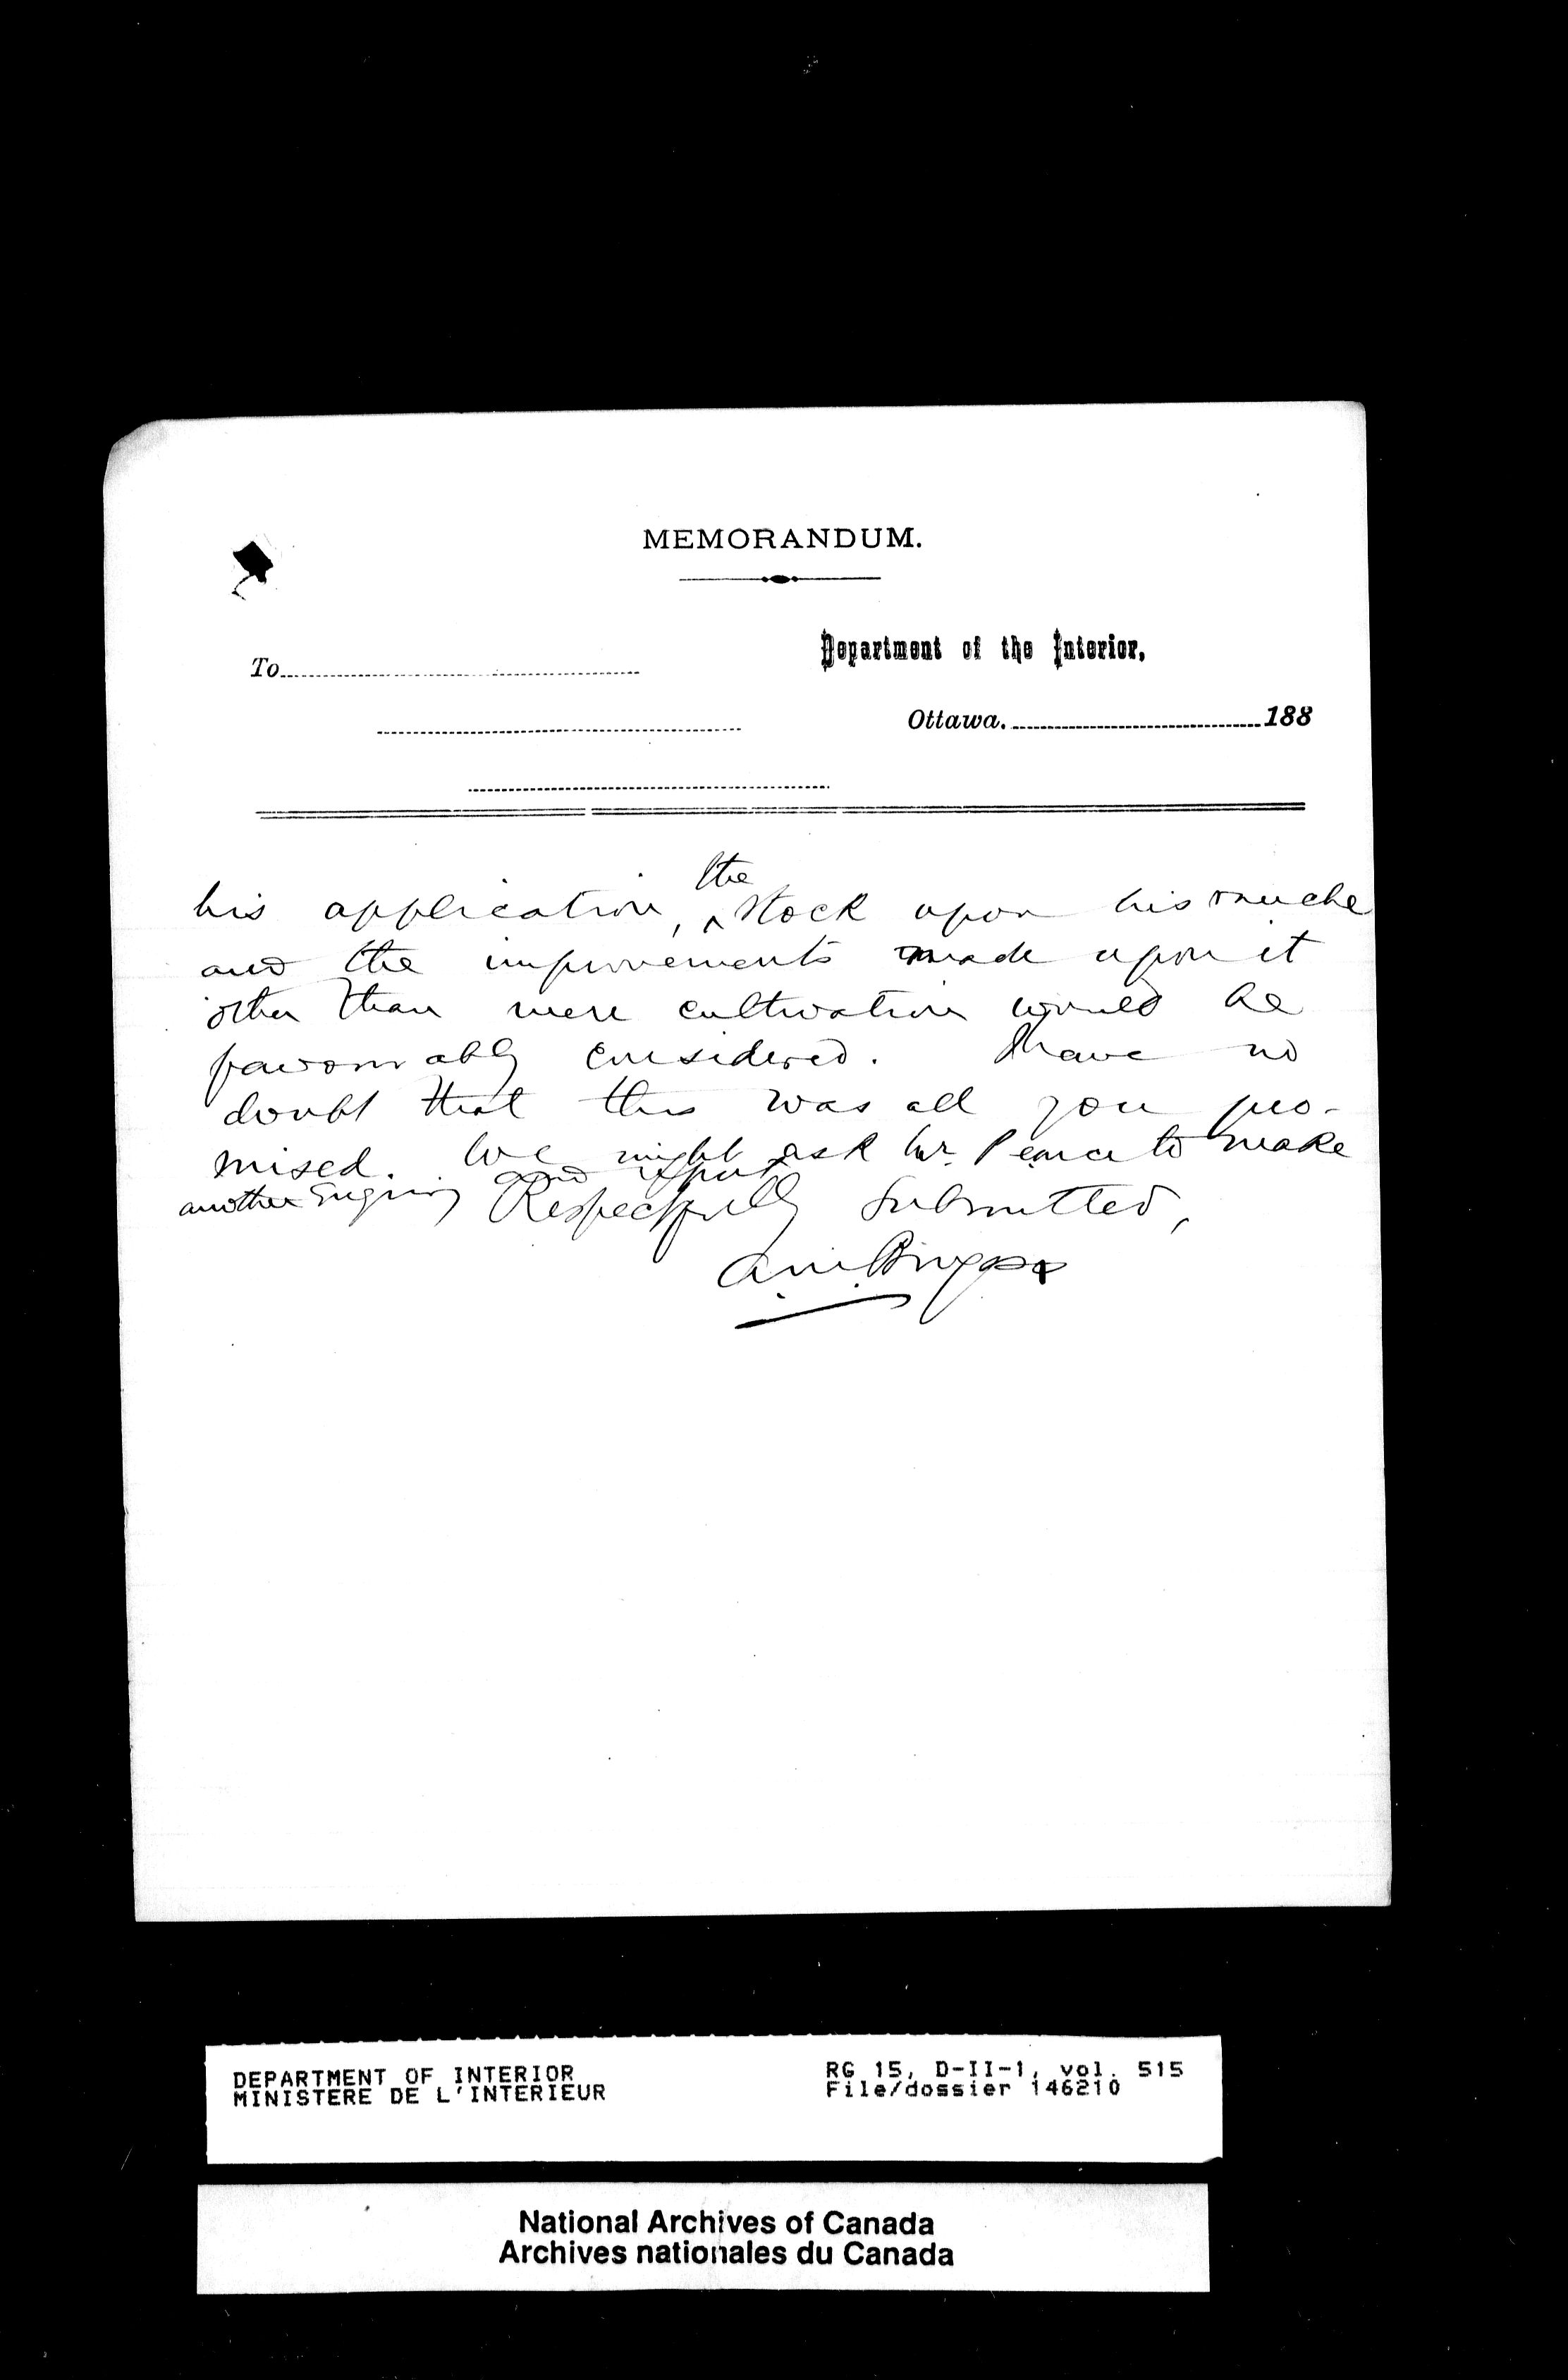 MEMORANDUM.
Department of the Interior,
To
Ottawa, 188
the
his application, ^ stock upon his ranche
and the improvements made upon it
other than mere cultivation would be
favourably considered. I have no
doubt that this was all you pro-
mised. We might ask Mr. Pearce to make
another enquiry and report
Respectfully Submitted,
DEPARTMENT OF INTERIOR
MINISTERE DE L'INTERIEUR
RG 15, D-II-1, vol. 515
File/dossier 146210
National Archives of Canada
Archives nationales du Canada